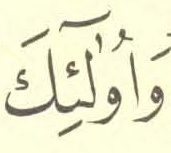 وَأُولَٰٓئِكَ